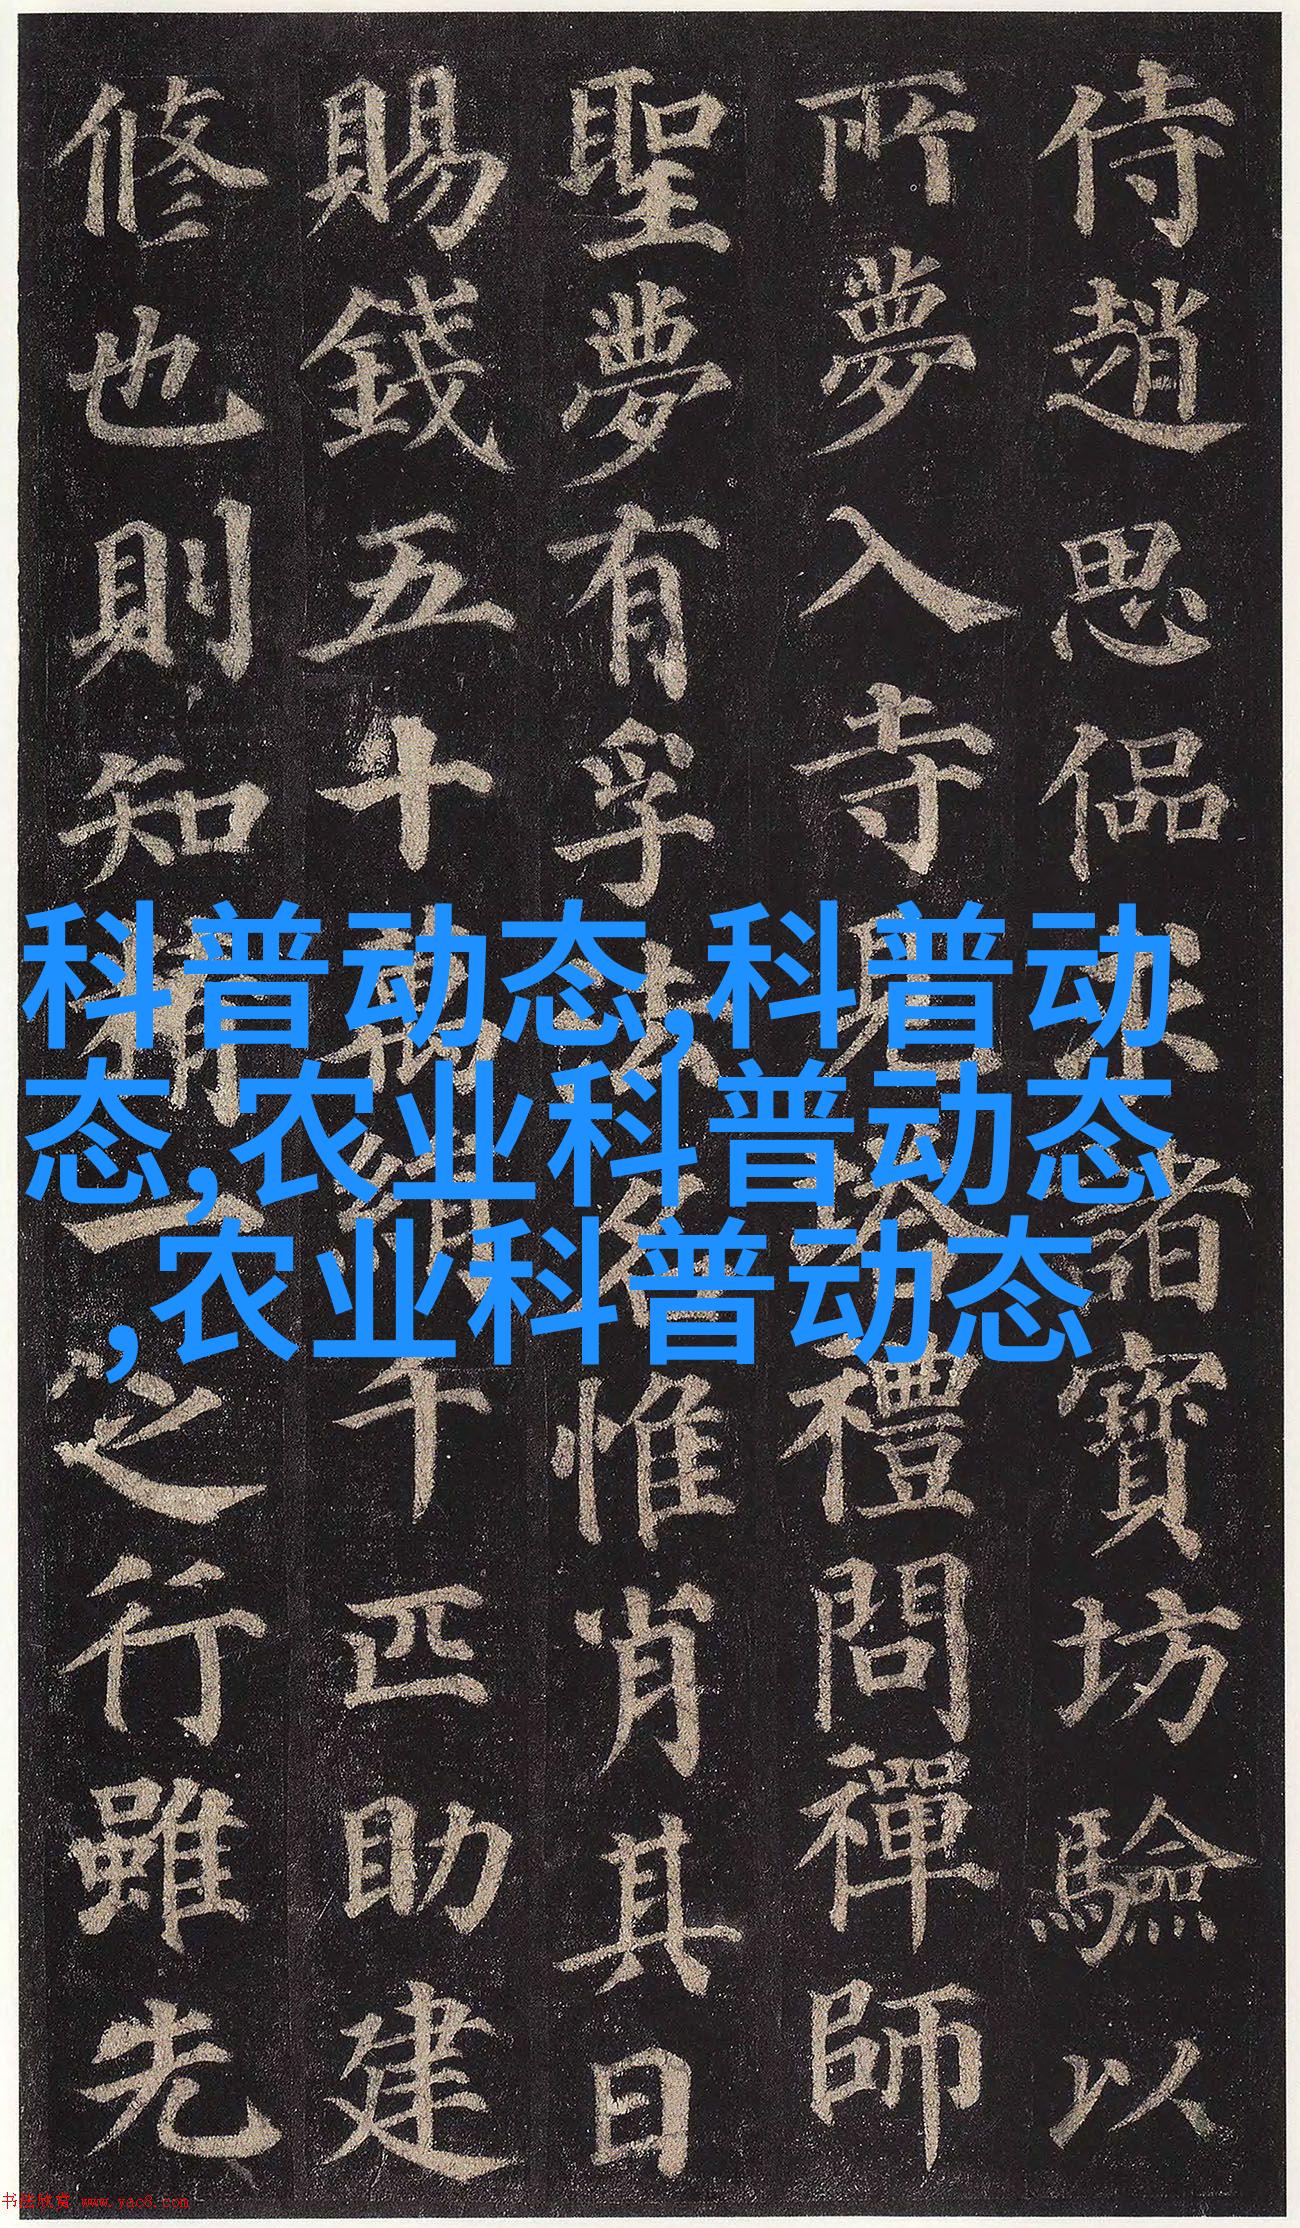 侍趙思偘求諸寶坊驗以
所夢入寺見塔禮問禪師
聖夢有孚法名惟肖其日
賜錢五十萬絹千匹助建
修也則知精一之行雖先
科普动态,科普动
态,农业科普动态
,农业科普动态
书法欣赏 www.yac8.com